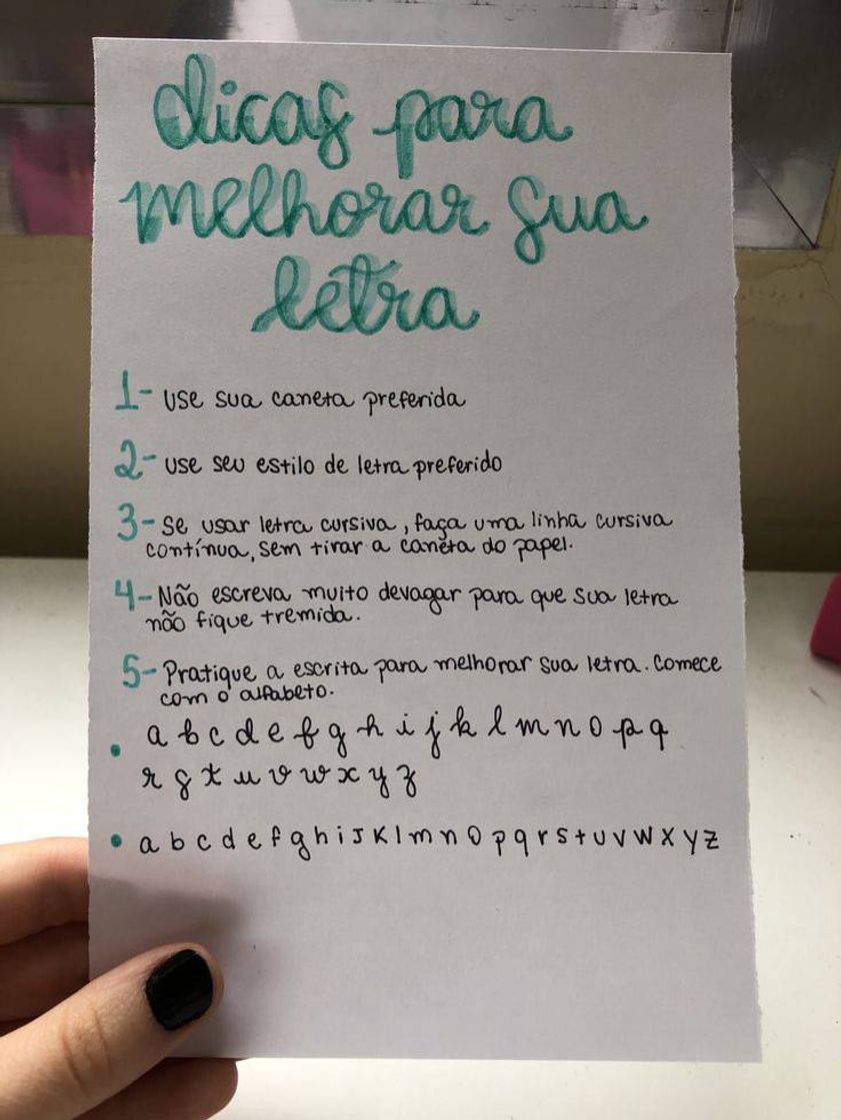 dicas para
melhorar sua
letra
1- use sua caneta preferida
2- use seu estilo de letra preferido
3- Se usar letra cursiva, faça uma linha cursiva
contínua, sem tirar a caneta do papel.
4- Não escreva muito devagar para que sua letra
não fique tremida.
5- Pratique a escrita para melhorar sua letra. Comece
com o alfabeto.
• a b c d e f g h i j k l m n o p q
r s t u v w x y z
• a b c d e f g h i J K l m n O p q r s t u v w x y z